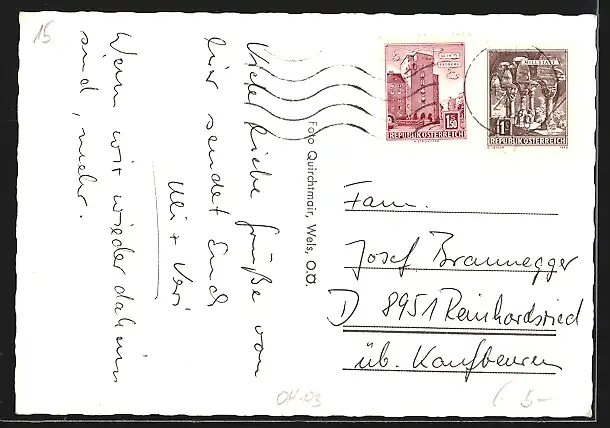 15
Viele liebe Grüße von
hier sendet Euch
Uli + Veri
Wenn wir wieder daheim
sind, mehr.
Foto Quirchtmair, Wels, O.Ö.
WIEN
1.50
REPUBLIK ÖSTERREICH
MILLSTATT
1S
REPUBLIK ÖSTERREICH
Fam.
Josef Braunegger
D 8951 Reinhardsried
üb. Kaufbeuren
5-